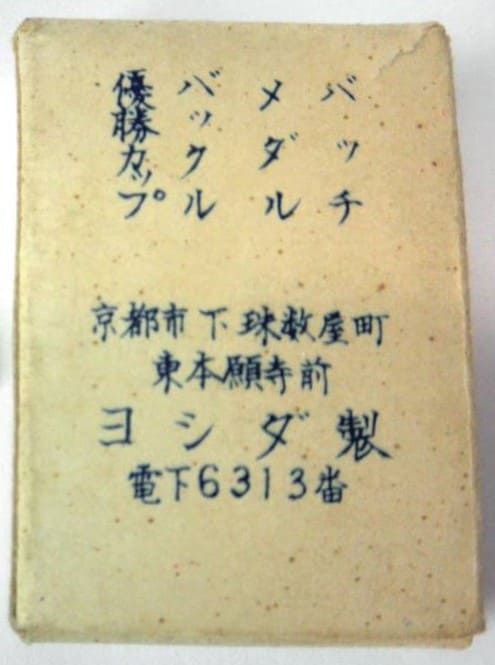 バッチ
メダル
バックル
優勝カップ
京都市下珠数屋町
東本願寺前
ヨシダ製
電下6313番